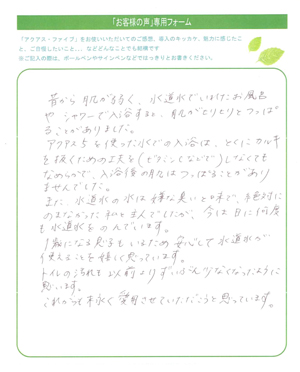 「お客様の声」専用フォーム
「アクアス・ファイブ」をお使いいただいてのご感想、導入のキッカケ、魅力に感じたこ
と、ご自慢したいこと… などどんなことでも結構です
※ご記入の際は、ボールペンやサインペンなどではっきりとお書きください。
昔から肌が弱く、水道水でいれたお風呂
や シャワーで入浴すると、肌がピリピリとつっぱ
ることがありました。
アクアス5を使った水での入浴は、とくにカルキ
を抜くための工夫を しなくても
なめらかで、入浴後の肌はつっぱることがあり
ませんでした。
また、水道水の水は嫌な臭いと味で、絶対に
のまなかった私と主人でしたが、今は1日に何度
も水道水をのんでいます。
1歳になる息子もいるため安心して水道水が
使えることを嬉しく思っています。
トイレの汚れも以前よりずいぶん少なくなったように
思います。
これからも末永く愛用させていただこうと思っています。